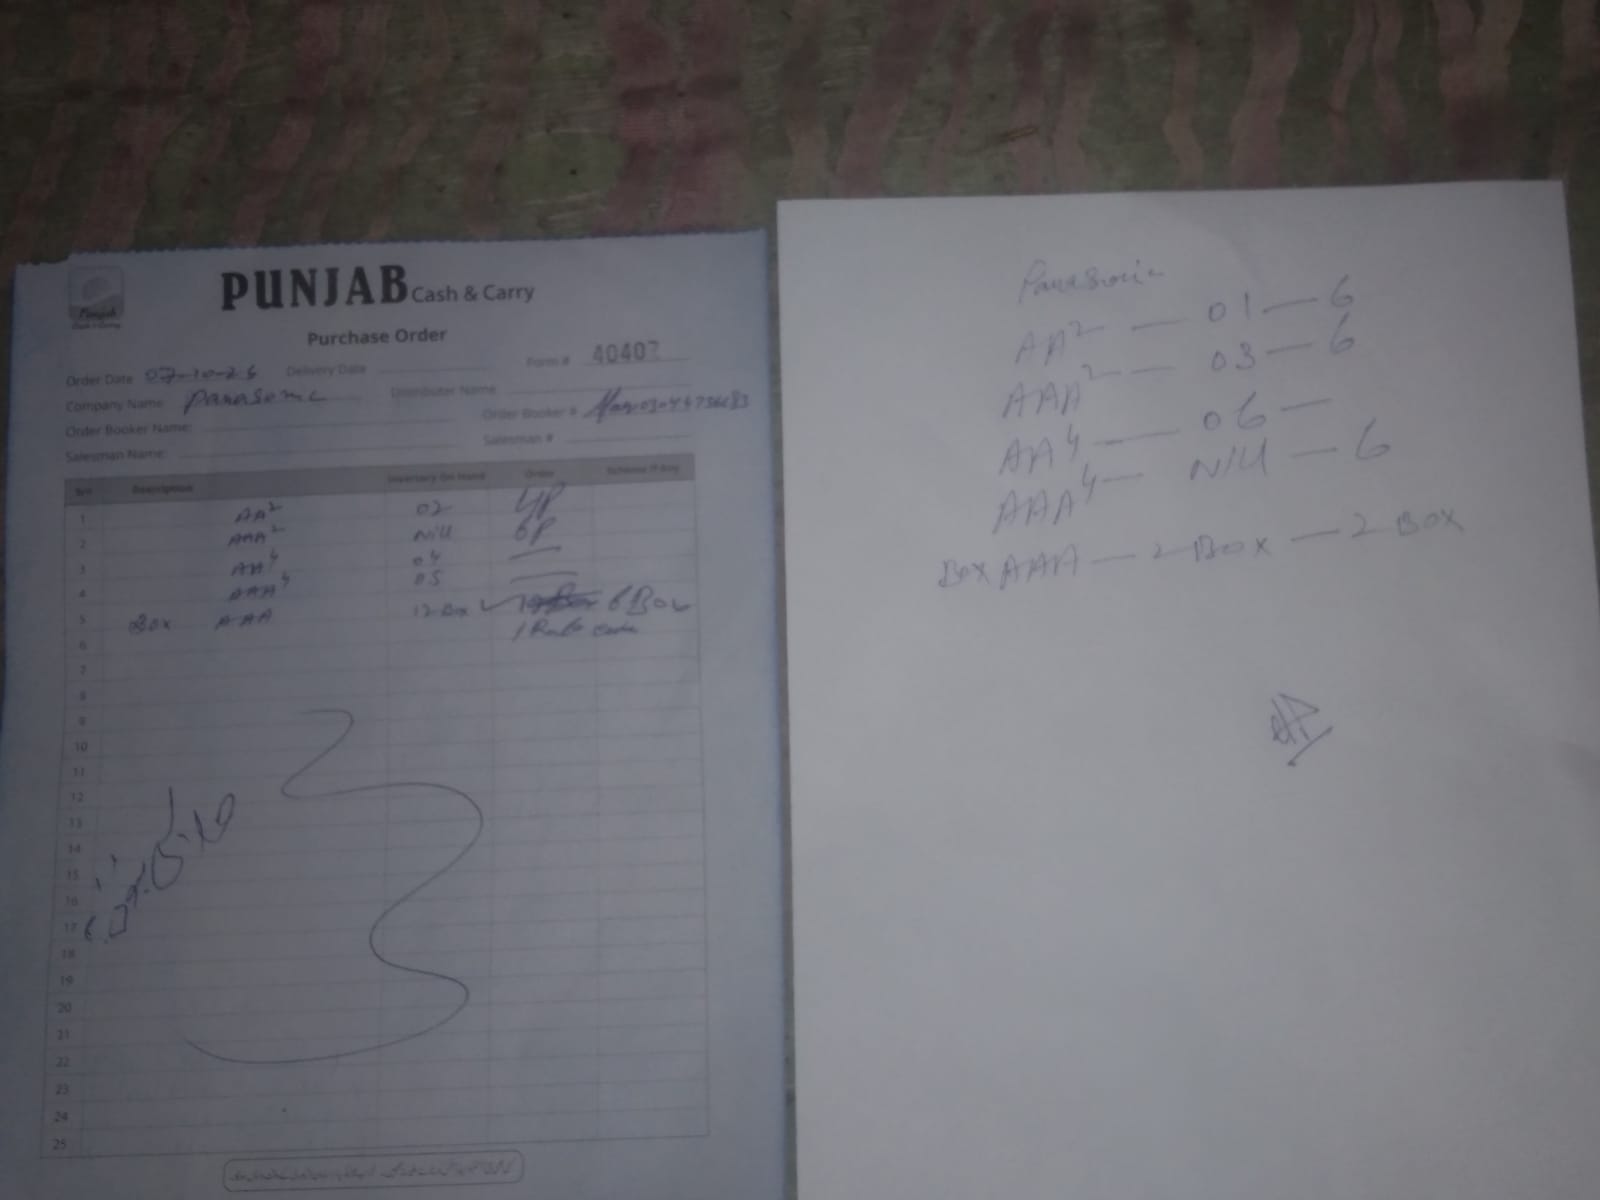 Punjab
PUNJAB Cash & Carry
Purchase Order
Form # 40407
Order Date 07-10-26 Delivery Date
Company Name Panasonic Distributer Name
Order Booker Name: Order Booker #
Salesman Name: Salesman #
Sr# Description Inventory On Hand Order Scheme If Any
1 AA² 02 4P
2 AAA² Nill 6P
3 AA⁴ 04 —
4 AAA⁴ 05 —
5 Box AAA 12 Box 6 Box
6 1
7
8
9
10
11
12
13
14
15
16
17
18
19
20
21
22
23
24
25
Panasonic
AA² — 01 — 6
AAA² — 03 — 6
AA⁴ — 06 —
AAA⁴ — Nill — 6
Box AAA — 2 Box — 2 Box